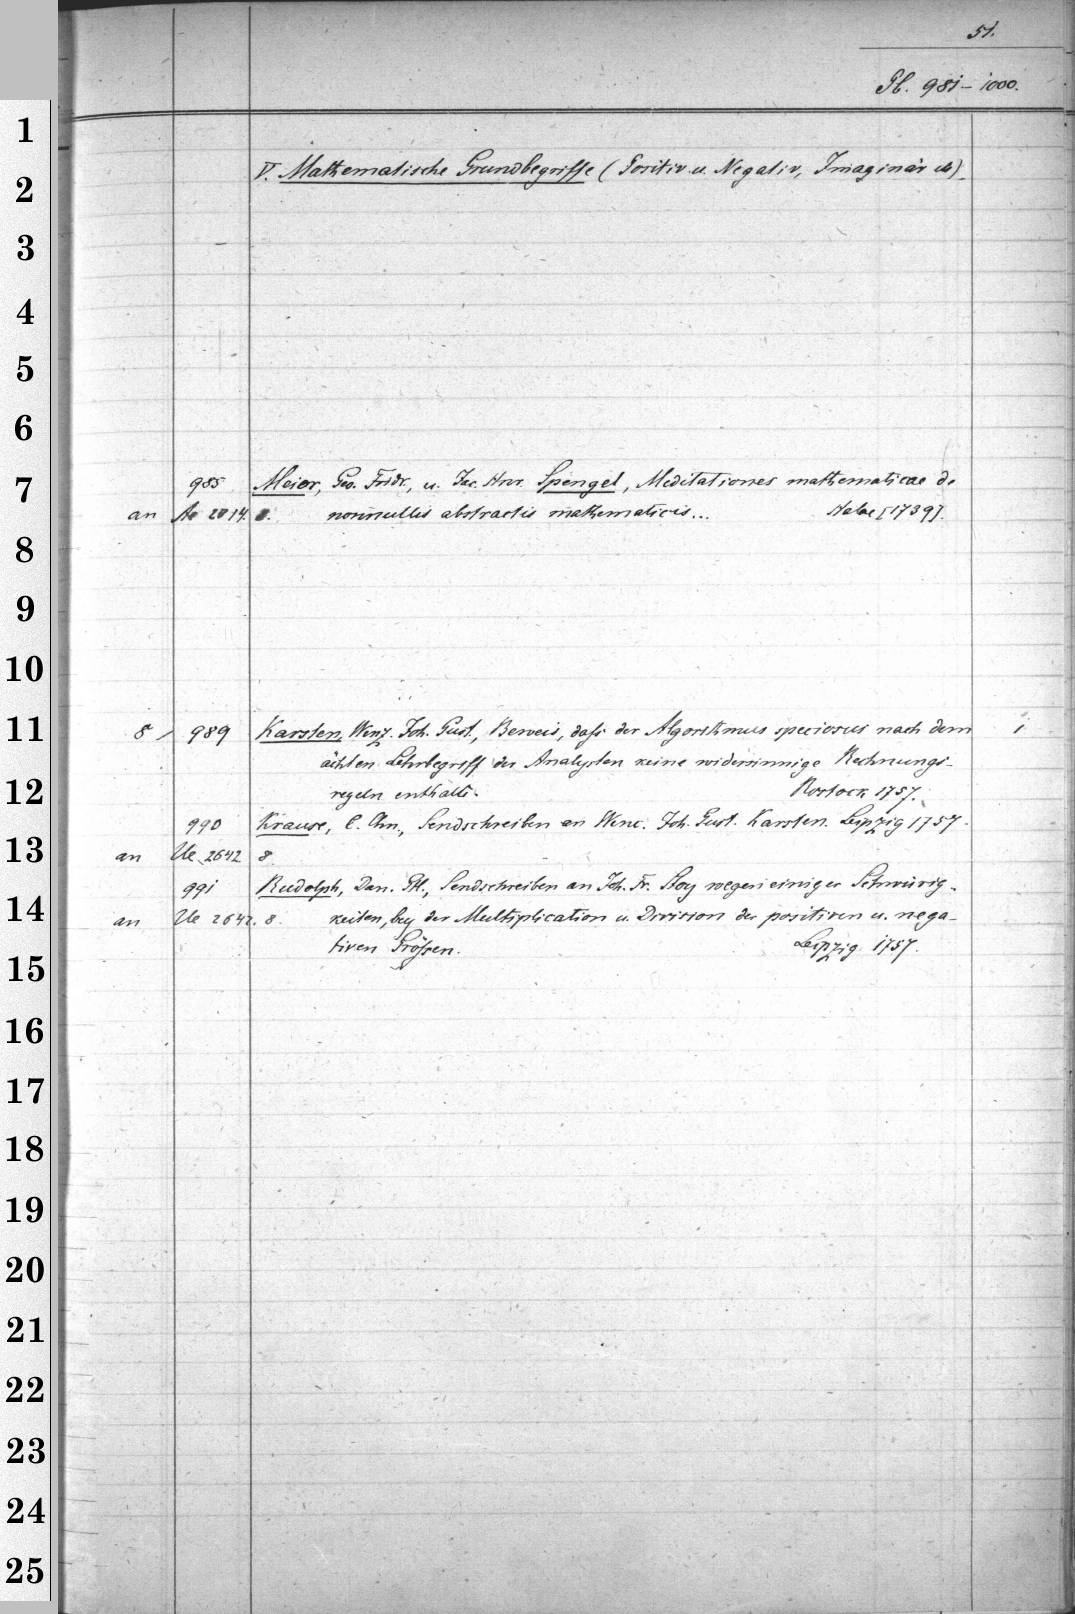 51.
Pb. 981-1000.
V. Mathematische Grundbegriffe (Positiv u. Negativ, Imaginär etc)
985 Meier, Geo. Fridr., u. Jac. Henr. Spengel, Meditationes mathematicae de
an Ae 2014. 8. nonnullis abstractis mathematicis... Halae [1739].
8 989 Karsten, Wenz. Joh. Gust., Beweis, dass der Algorithmus speciosus nach dem 1
ächten Lehrbegriff der Analysten keine widersinnige Rechnungs-
regeln enthalte. Rostock 1757.
990 Krause, C. Chn., Sendschreiben an Wenc. Joh. Gust. Karsten. Leipzig 1757.
an Ue 2642 8.
991 Rudolph, Dan. Gtl., Sendschreiben an Joh. Fr. Stoy wegen einiger Schwürig-
an Ue 2642. 8. keiten, bey der Multiplication u. Division der positiven u. nega-
tiven Grössen. Leipzig 1757.
1
2
3
4
5
6
7
8
9
10
11
12
13
14
15
16
17
18
19
20
21
22
23
24
25